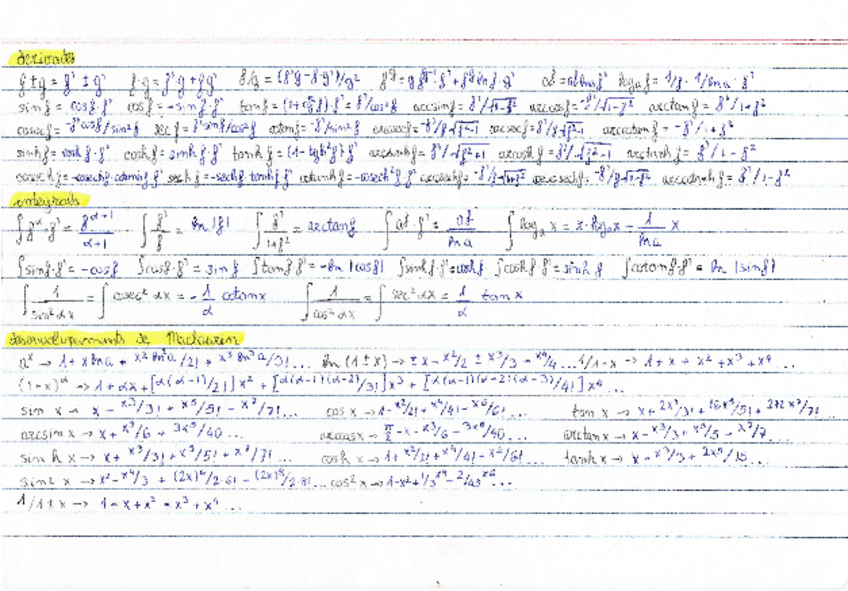 derivates
f ± g = f' ± g'  f·g = f'·g + f·g'  f/g = (f'·g - f·g')/g²  a^f = a^f ln a · f'  log_a f = 1/f · 1/ln a · f'
sin f = cos f · f'  cos f = -sin f · f'  tan f = f'/cos² f  arcsin f = f'/√1-f²  arccos f = -f'/√1-f²  arctan f = f'/1+f²
cosec f = -f' cos f/sin² f  sec f = f' sin f/cos² f  cotan f = -f'/sin² f  arccotan f = -f'/1+f²
sinh f = cosh f · f'  cosh f = sinh f · f'  tanh f = (1-tgh² f) f'  arcsinh f = f'/√f²+1  arccosh f = f'/√f²-1  arctanh f = f'/1-f²
cosech f = -cosech f · cotanh f · f'  sech f = -sech f · tanh f · f'  cotanh f = -cosech² f · f'  arccotanh f = f'/1-f²
integrals
∫ f^α · f' = f^(α+1)/(α+1)  ∫ f'/f = ln |f|  ∫ f'/(1+f²) = arctan f  ∫ a^f · f' = a^f/ln a  ∫ log_a x = x · log_a x - 1/ln a x
∫ sin f · f' = -cos f  ∫ cos f · f' = sin f  ∫ tan f f' = -ln |cos f|  ∫ sinh f · f' = cosh f  ∫ cosh f f' = sinh f  ∫ cotan f · f' = ln |sin f|
∫ 1/sin² αx = ∫ cosec² αx = -1/α cotan x  ∫ 1/cos² αx = ∫ sec² αx = 1/α tan x
Desenvolupaments de Mackleurin
a^x → 1 + x ln a + x² ln² a/2! + x³ ln³ a/3! ...  ln (1 ± x) → ± x - x²/2 ± x³/3 - x⁴/4 ...  1/1-x → 1 + x + x² + x³ + x⁴ ...
(1+x)^α → 1 + αx + [α(α-1)/2!] x² + [α(α-1)(α-2)/3!] x³ + [α(α-1)(α-2)(α-3)/4!] x⁴ ...
sin x → x - x³/3! + x⁵/5! - x⁷/7! ...  cos x → 1 - x²/2! + x⁴/4! - x⁶/6! ...  tan x → x + 2x³/3! + 16x⁵/5! + 272x⁷/7! ...
arcsin x → x + x³/6 + 3x⁵/40 ...  arccos x → π/2 - x - x³/6 - 3x⁵/40 ...  arctan x → x - x³/3 + x⁵/5 - x⁷/7 ...
sin h x → x + x³/3! + x⁵/5! + x⁷/7! ...  cosh x → 1 + x²/2! + x⁴/4! - x⁶/6! ...  tanh x → x - x³/3 + 2x⁵/15 ...
sin² x → x² - x⁴/3 + (2x)⁶/2·6! - (2x)⁸/2·8! ...  cos² x → 1 - x² + 1/3 x⁴ - 2/45 x⁶ ...
1/1±x → 1 - x + x² - x³ + x⁴ ...